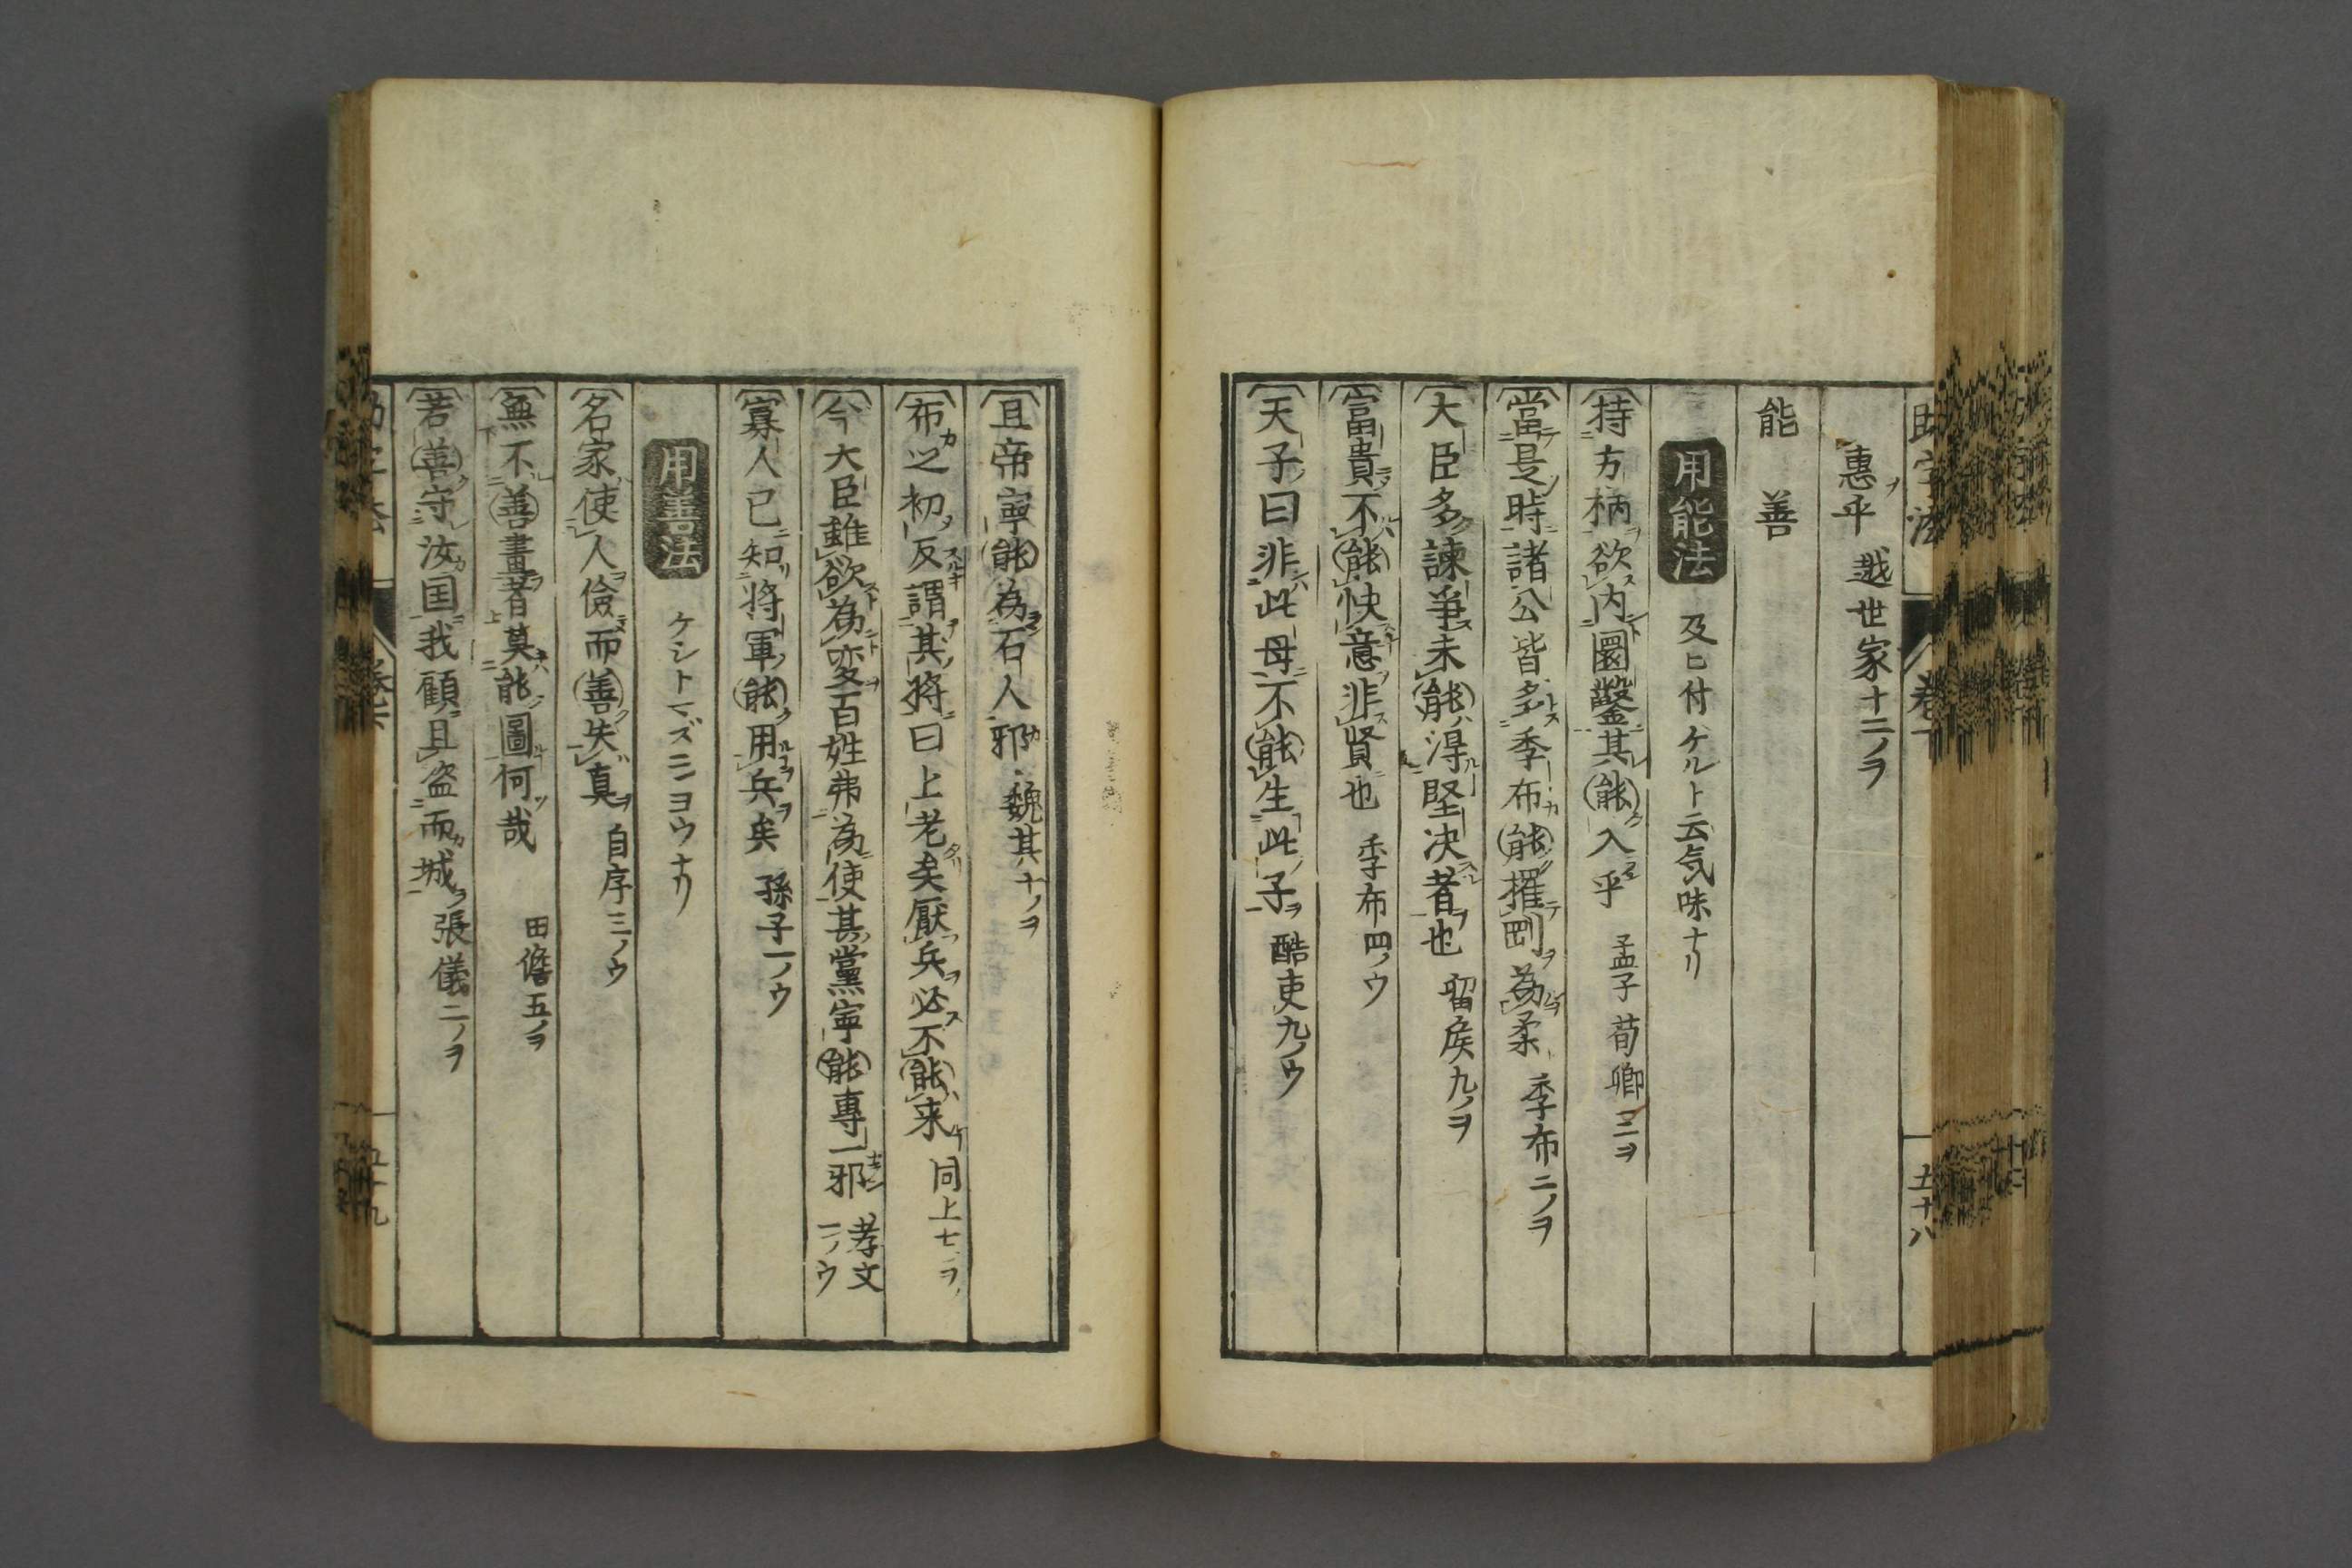 助字法
五十八
惠乎 越世家十二ノヲ
能 善
用能法 及ヒ付ケルト云気味ナリ
持方枘欲内圜鑿其能入乎 孟子荀卿二ヲ
當是時諸公皆多季布能摧剛為柔 季布二ノヲ
大臣多諫爭未能淂堅决者也 留侯九ノヲ
富貴不能快意非賢也 季布四ノウ
天子曰非此母不能生此子 酷吏九ノウ
且帝寧能為石人邪 魏其十ノヲ
布之初反謂其将曰上老矣厭兵必不能来 同上七ヲ
今大臣雖欲為変百姓弗為使其黨寧能專一邪 孝文二ノウ
寡人已知将軍能用兵矣 孫子一ノウ
用善法 ケシトマズニヨウナリ
名家使人儉而善失真 自序三ノウ
無不善畫者莫能圖何哉 田儋五ノヲ
若善守汝国我顧且盗而城 張儀二ノヲ
五十九